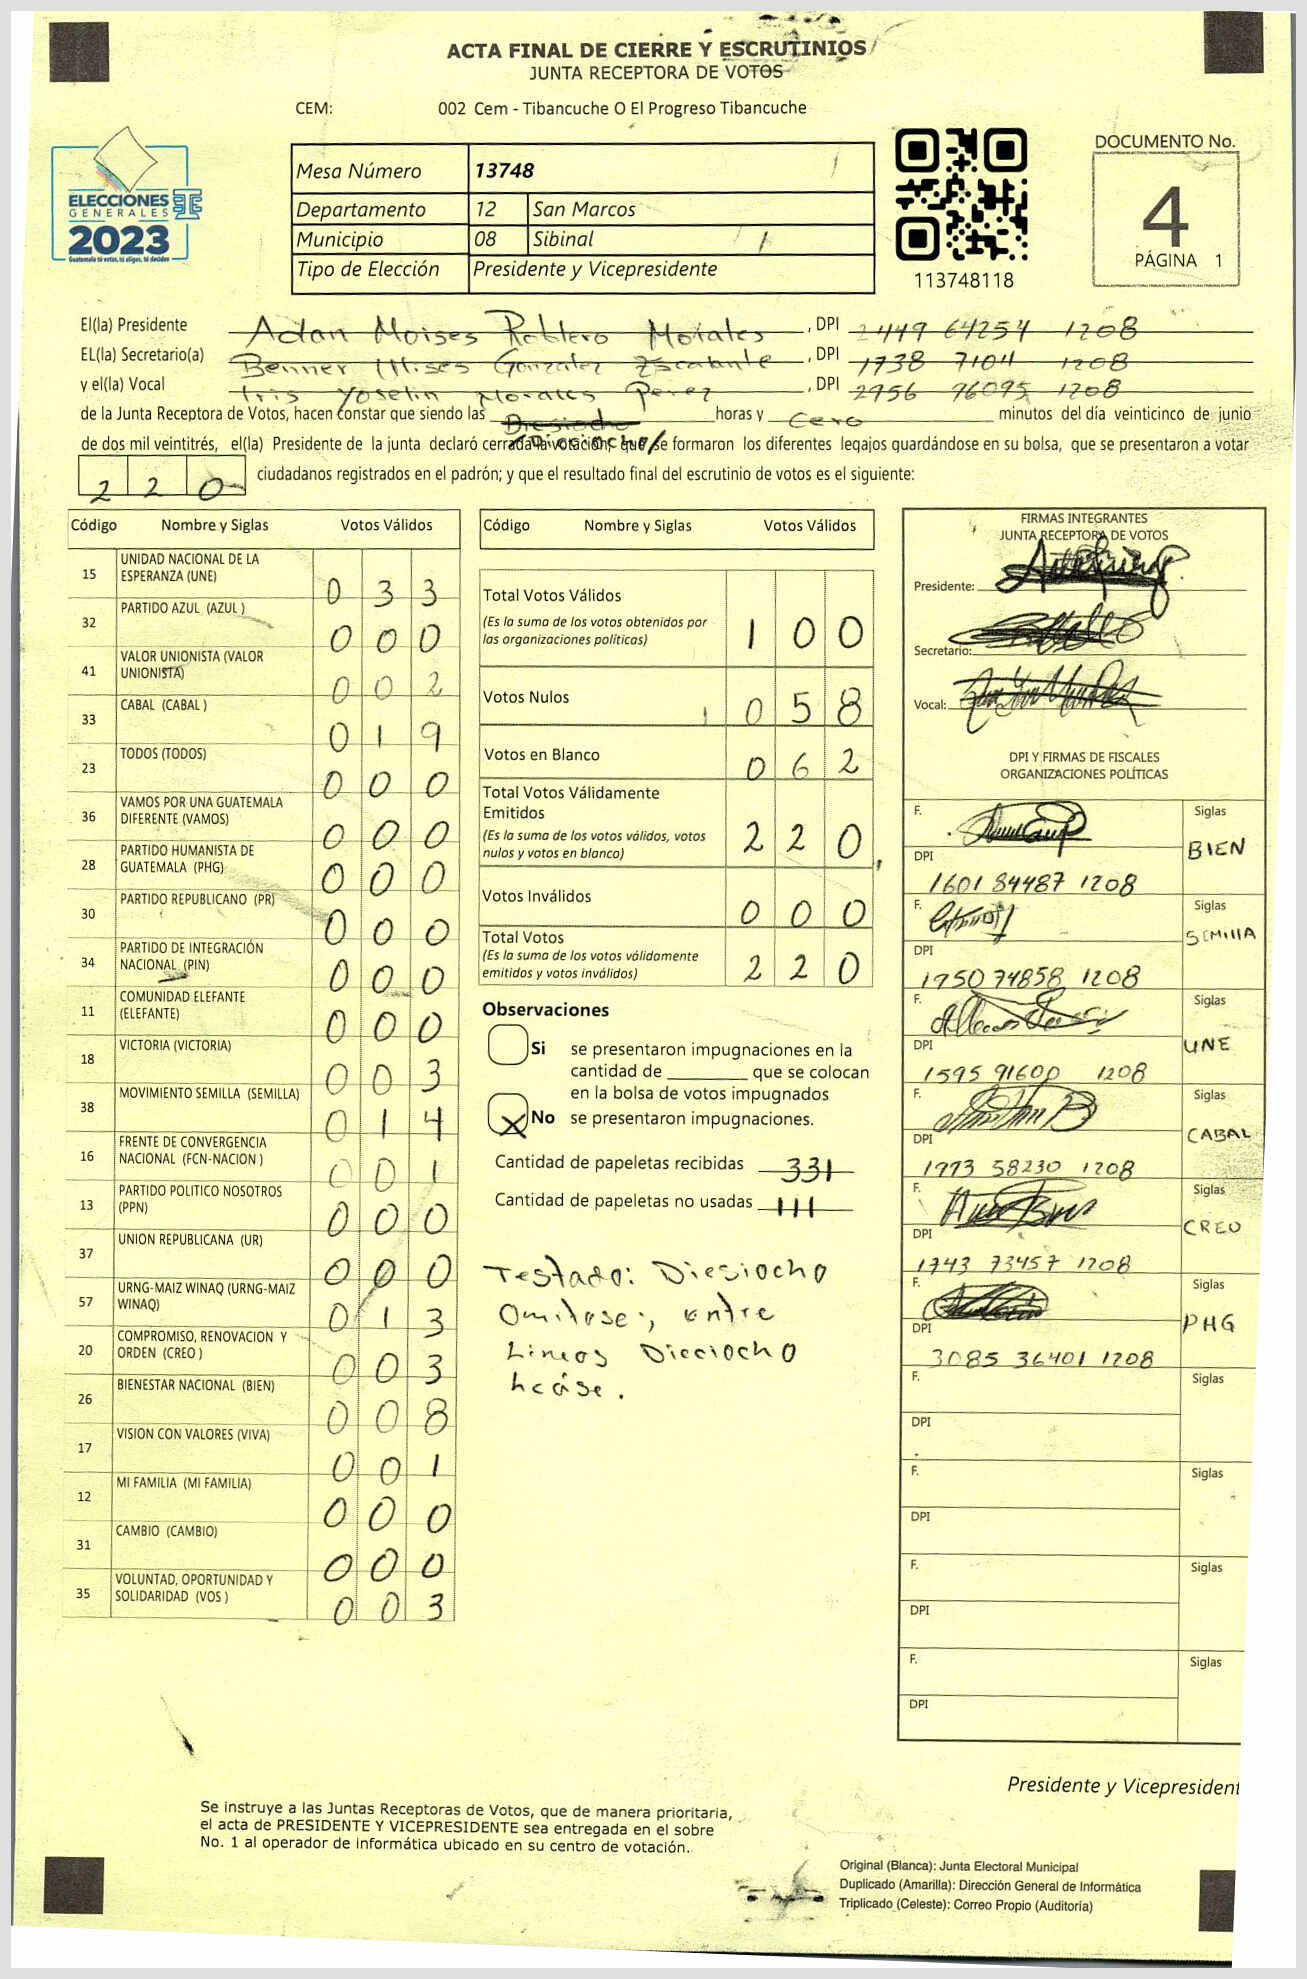 ACTA FINAL DE CIERRE Y ESCRUTINIOS
JUNTA RECEPTORA DE VOTOS
CEM: 002 Cem - Tibancuche O El Progreso Tibancuche
ELECCIONES
GENERALES
2023
Guatemala tú votas, tú eliges, tú decides
Mesa Número 13748
Departamento 12 San Marcos
Municipio 08 Sibinal
Tipo de Elección Presidente y Vicepresidente
113748118
DOCUMENTO No.
4
PÁGINA 1
El(la) Presidente Adan Moises Roblero Morales , DPI 2449 64254 1208
EL(la) Secretario(a) Benner Ulises Gonzalez Escalante , DPI 1738 7104 1208
y el(la) Vocal Iris Yoselin Morales Perez , DPI 2956 96095 1208
de la Junta Receptora de Votos, hacen constar que siendo las Diesiocho horas y Cero minutos del día veinticinco de junio
/Dieciocho/
de dos mil veintitrés, el(la) Presidente de la junta declaró cerrada la votación, que se formaron los diferentes legajos guardándose en su bolsa, que se presentaron a votar
220 ciudadanos registrados en el padrón; y que el resultado final del escrutinio de votos es el siguiente:
Código Nombre y Siglas Votos Válidos
15 UNIDAD NACIONAL DE LA ESPERANZA (UNE) 0 3 3
32 PARTIDO AZUL (AZUL ) 0 0 0
41 VALOR UNIONISTA (VALOR UNIONISTA) 0 0 2
33 CABAL (CABAL ) 0 1 9
23 TODOS (TODOS) 0 0 0
36 VAMOS POR UNA GUATEMALA DIFERENTE (VAMOS) 0 0 0
28 PARTIDO HUMANISTA DE GUATEMALA (PHG) 0 0 0
30 PARTIDO REPUBLICANO (PR) 0 0 0
34 PARTIDO DE INTEGRACIÓN NACIONAL (PIN) 0 0 0
11 COMUNIDAD ELEFANTE (ELEFANTE) 0 0 0
18 VICTORIA (VICTORIA) 0 0 3
38 MOVIMIENTO SEMILLA (SEMILLA) 0 1 4
16 FRENTE DE CONVERGENCIA NACIONAL (FCN-NACION ) 0 0 1
13 PARTIDO POLITICO NOSOTROS (PPN) 0 0 0
37 UNION REPUBLICANA (UR) 0 0 0
57 URNG-MAIZ WINAQ (URNG-MAIZ WINAQ) 0 1 3
20 COMPROMISO, RENOVACION Y ORDEN (CREO ) 0 0 3
26 BIENESTAR NACIONAL (BIEN) 0 0 8
17 VISION CON VALORES (VIVA) 0 0 1
12 MI FAMILIA (MI FAMILIA) 0 0 0
31 CAMBIO (CAMBIO) 0 0 0
35 VOLUNTAD, OPORTUNIDAD Y SOLIDARIDAD (VOS ) 0 0 3
Código Nombre y Siglas Votos Válidos
Total Votos Válidos 1 0 0
(Es la suma de los votos obtenidos por
las organizaciones políticas)
Votos Nulos 0 5 8
Votos en Blanco 0 6 2
Total Votos Válidamente
Emitidos 2 2 0
(Es la suma de los votos válidos, votos
nulos y votos en blanco)
Votos Inválidos 0 0 0
Total Votos 2 2 0
(Es la suma de los votos válidamente
emitidos y votos inválidos)
Observaciones
Si se presentaron impugnaciones en la
cantidad de ________ que se colocan
en la bolsa de votos impugnados
X No se presentaron impugnaciones.
Cantidad de papeletas recibidas 331
Cantidad de papeletas no usadas 111
Testado: Diesiocho
Omitase; entre
Lineas Dieciocho
léase.
FIRMAS INTEGRANTES
JUNTA RECEPTORA DE VOTOS
Presidente:
Secretario:
Vocal:
DPI Y FIRMAS DE FISCALES
ORGANIZACIONES POLÍTICAS
F. Siglas BIEN
DPI 1601 84487 1208
F. Siglas SEMILLA
DPI 1950 74858 1208
F. Siglas UNE
DPI 1595 91600 1208
F. Siglas CABAL
DPI 1973 58230 1208
F. Siglas CREO
DPI 1743 73457 1208
F. Siglas PHG
DPI 3085 36401 1208
F. Siglas
DPI
F. Siglas
DPI
F. Siglas
DPI
F. Siglas
DPI
Presidente y Vicepresident
Se instruye a las Juntas Receptoras de Votos, que de manera prioritaria,
el acta de PRESIDENTE Y VICEPRESIDENTE sea entregada en el sobre
No. 1 al operador de informática ubicado en su centro de votación.
Original (Blanca): Junta Electoral Municipal
Duplicado (Amarilla): Dirección General de Informática
Triplicado (Celeste): Correo Propio (Auditoría)